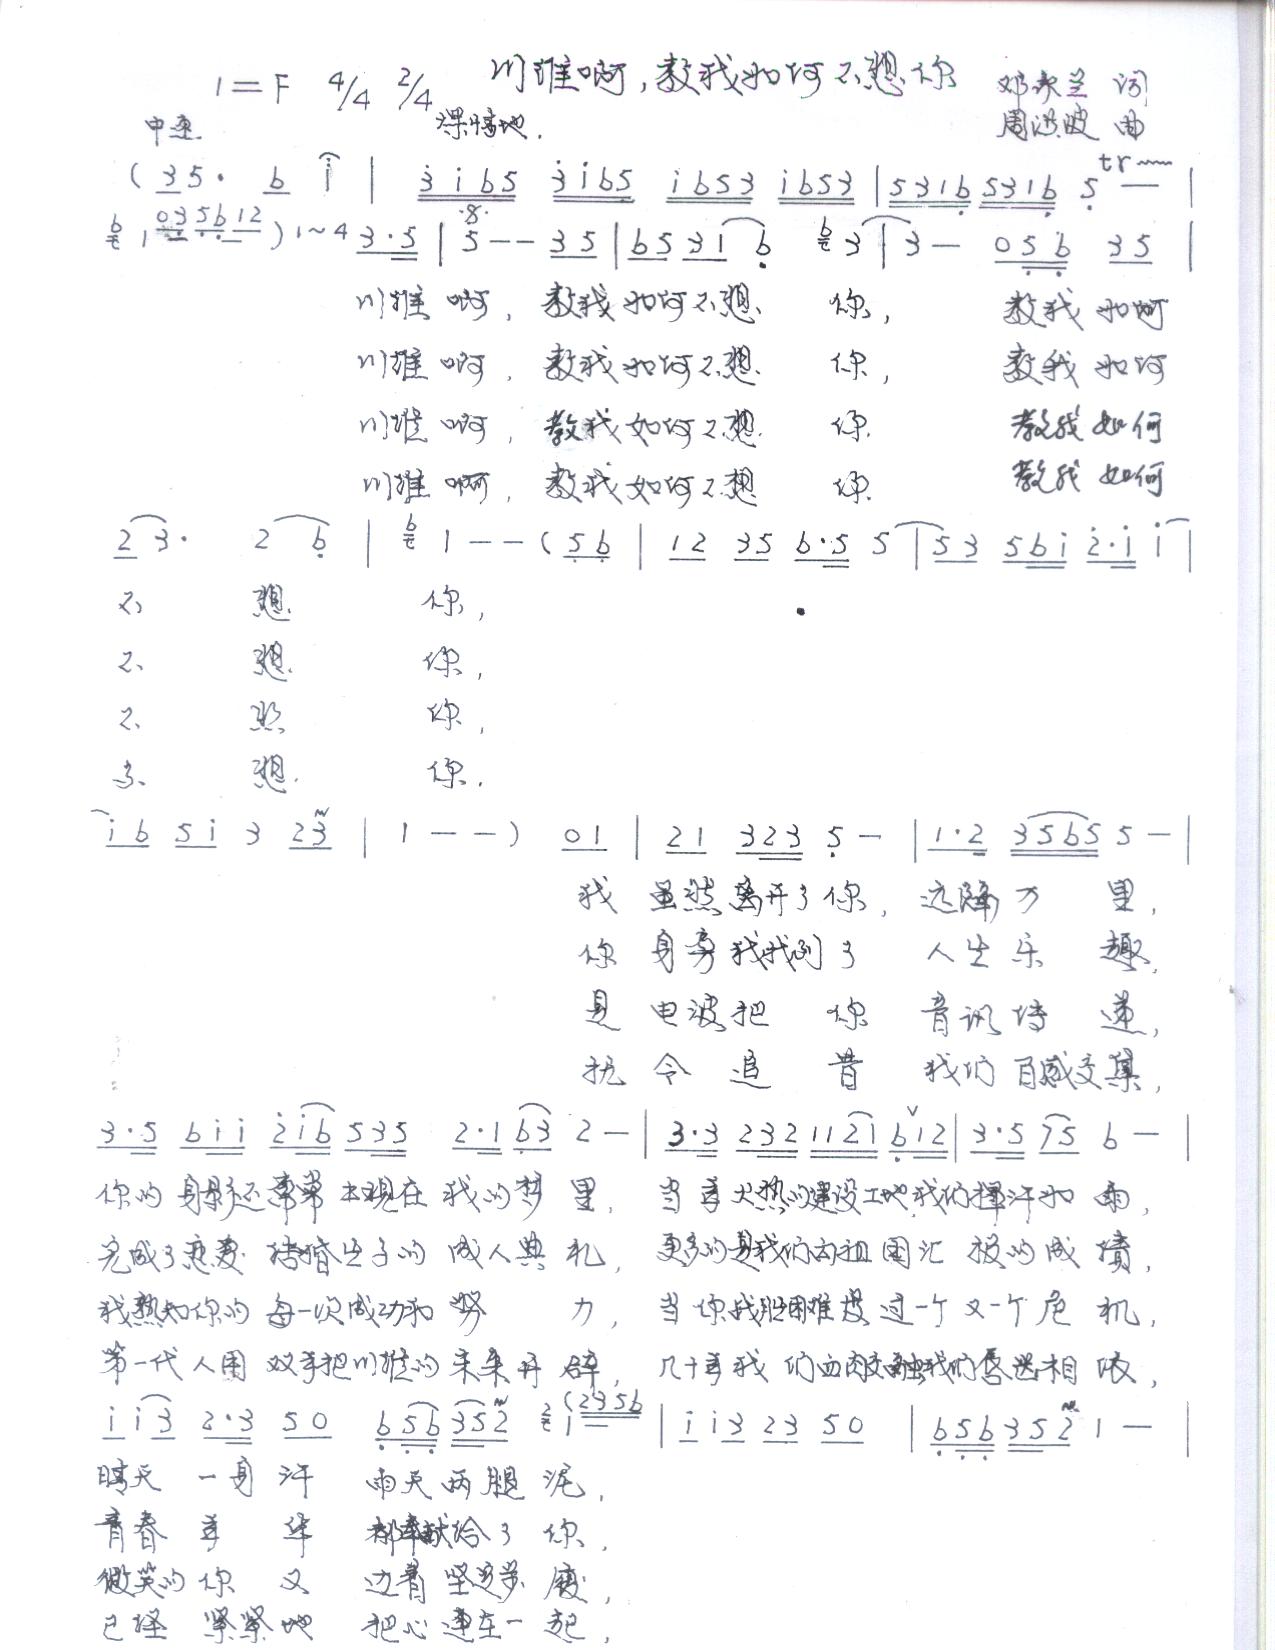 川维啊,教我如何不想你
1=F 4/4 2/4 邓 兰 词
中速 深情地. 周洪波 曲
(35· 6 i | 3i65 3i65 i653 i653 | 5316 5316 5 — |
1 03 56 12 ) 1~4 3·5 | 5 -- 35 | 65 31 6 3 | 3 — 056 35 |
川维 啊, 教我如何不想 你, 教我 如何
川维 啊, 教我如何不想 你, 教我 如何
川维 啊, 教我如何不想 你. 教我 如何
川维 啊, 教我如何不想 你. 教我 如何
23· 2 6 | 6 1 --- (56 | 12 35 6·5 5 | 53 56i 2·i i |
不 想 你,
不 想 你,
不 想 你,
不 想 你.
i6 5i 3 23 | 1 --- ) 01 | 21 323 5 — | 1·2 3565 5 — |
我 虽然离开了你, 远隔万 里,
你 身旁我找到了 人生乐 趣,
是 电波把 你 音讯传 递,
抚 今 追 昔 我们百感交集,
3·5 6ii 2i6 535 2·1 63 2 — | 3·3 232 1121 612 | 3·5 75 6 — |
你的 身影还常常出现在 我的梦 里, 当年火热的建设工地我们挥汗如 雨,
完成了恋爱 结婚生子的 成人典 礼, 更多的是我们向祖国汇 报的成 绩,
我熟知你的 每一次成功和 努 力, 当你我 困难度过一个又一个危 机,
第一代人用 双手把川维的未来开 辟, 几十年我 们血肉交融我们唇齿相 依,
i i3 2·3 50 656 352 1 — (2356 | i i3 23 50 | 656 352 1 — |
晴天 一身 汗 雨天两腿 泥,
青春 年 华 都奉献给了 你,
微笑的你 又 迈着 坚定步 履,
已经 紧紧地 把心 连在一 起,